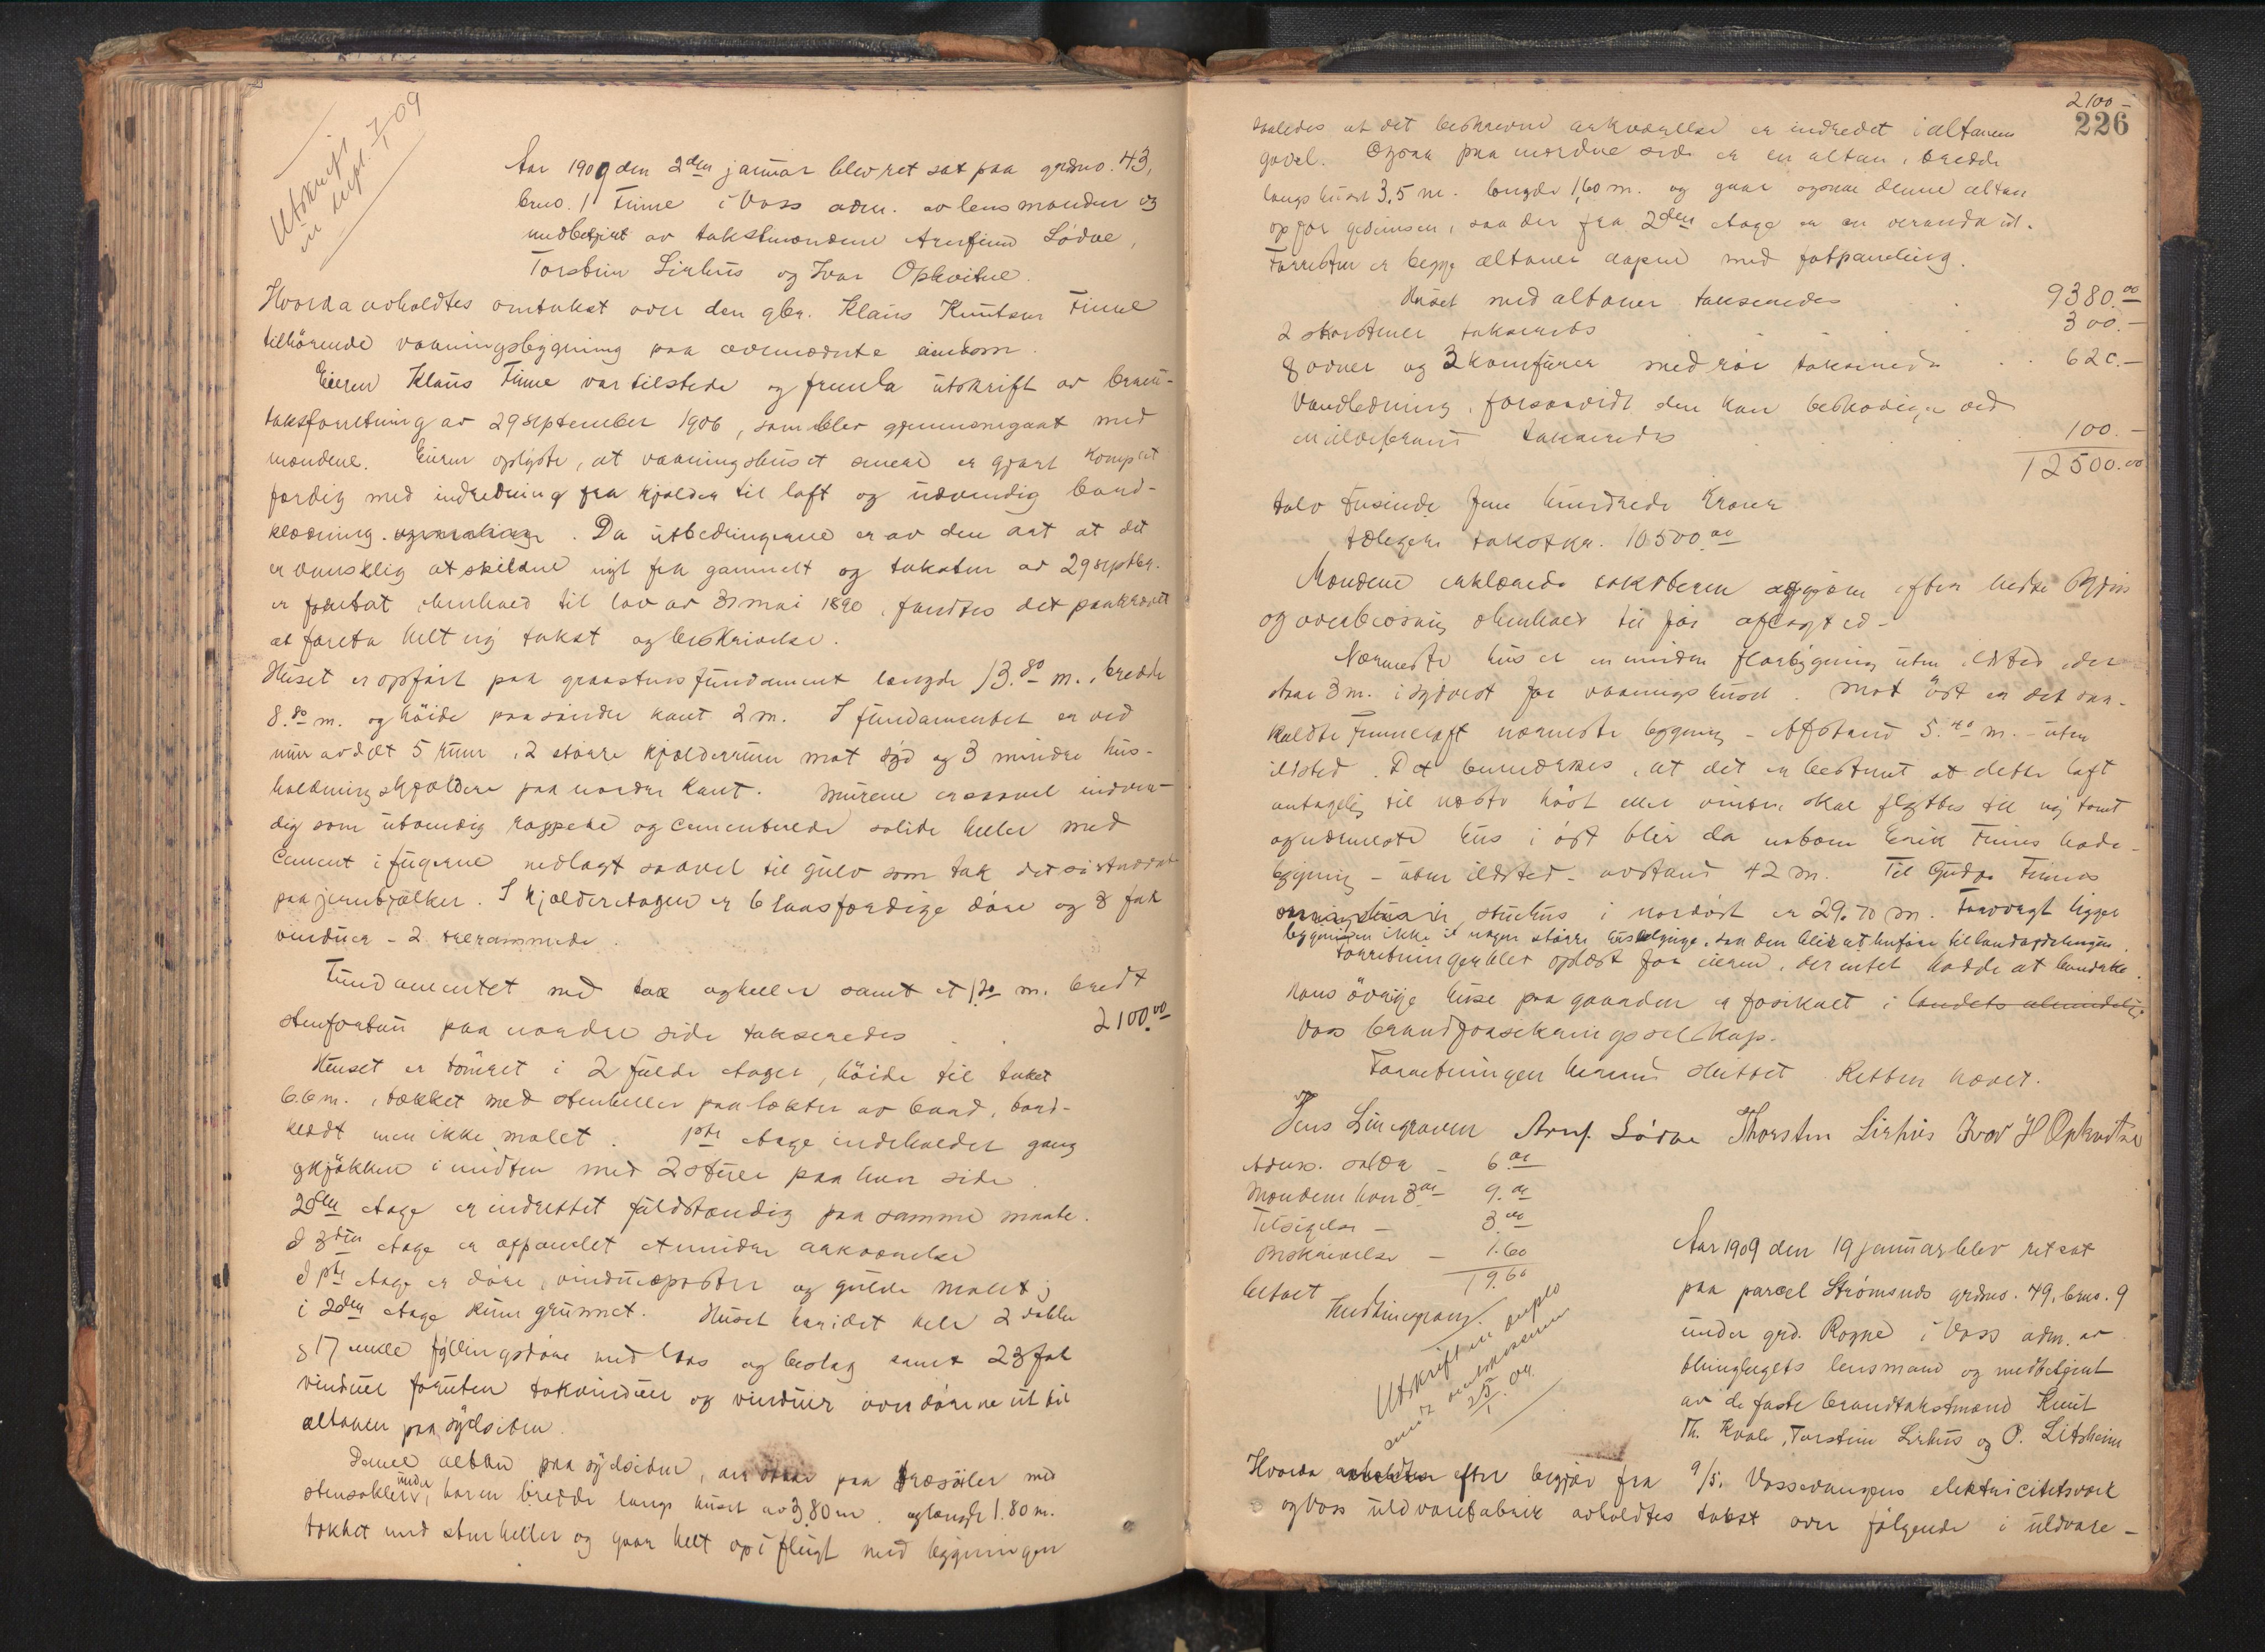 Utskrift
in dupl. 7/1 09
Aar 1909 den 2den januar blev ret sat paa grdno. 43,
brno. 1 Finne i Voss adm. av lensmanden og
medbetjent av takstmændene Arnfind Lödve,
Torstein Lirhus og Ivar Opkvitne.
Hvorda avholdtes omtakst over den gbr. Klaus Knutsen Finne
tilhörende vaaningsbygning paa ovennævnte eiendom.
Eieren Klaus Finne var tilstede og fremla utskrift av brand-
takstforretning av 29 september 1906, som blev gjennemgaat med
mændene. Eieren oplyste, at vaaningshuset senere er gjort komplet
færdig med indredning fra kjælder til loft og utvendig bord-
klædning. og maling. Da utbedringerne er av den art at det
er vanskelig at skildne nyt fra gammelt og taksten av 29 septbr.
er foretat i henhold til lov av 31 mai 1890, fandtes det paakrævet
at foreta helt ny takst og beskrivelse.
Huset er opfört paa graastensfundament længde 13.80 m., bredde
8.80 m. og höide paa söndre kant 2 m. I fundamentet er ved
mur avdelt 5 rum, 2 större kjælderrum mot syd og 3 mindre hus-
holdningskjældere paa nordre kant. Murene er saavel indven-
dig som utvendig rappede og cementerede solide heller med
cement i fugerne nedlagt saavel til gulv som tak det sistnævnte
paa jernbjælker. I kjælderetagen er 6 laasfærdige döre og 8 fak
vinduer - 2 rammede.
Fundamentet med tak og heller samt et 1.20 m. bredt
stenfortau paa nordre side takseredes . . 2100.00
Huset er tömret i 2 fulde etager, höide til taket
6.6 m., tækket med stenheller paa lækter av bord, bord-
klædt men ikke malet. 1ste etage indeholder gang
og kjökken i midten med 2 stuer paa hver side.
2den etage er indrettet fuldstændig paa samme maate.
I 3die etage er afpanelet et mindre arkværelse
I 1ste etage er döre, vinduesposter og gulve malet;
i 2den etage kun grunnet. Huset har i det hele 2 doble
og 17 enkle fyllingsdöre med laas og beslag samt 23 fak
vinduer foruten takvinduer og vinduer over dörene ut til
altanen paa sydsiden.
Denne altan paa sydsiden, der staar paa træsöiler med
stensokler under, har en bredde langs huset av 3.80 m. og længde 1.80 m.
tækket med stenheller og gaar helt op i flugt med bygningen
2100 -
226
saaledes at det beskrevne arkværelse er indredet i altanens
gavel. Ogsaa paa nordre side er en altan, bredde
langs huset 3,5 m. længde 1,60 m. og gaar ogsaa denne altan
op for gesimsen, saa der fra 2den etage er en veranda ut.
Forresten er begge altaner aapne med fotpaneling.
Huset med altaner takseredes . 9380.00
2 skorstener takseredes . . 300.-
8 ovner og 2 komfurer med rör takseredes . . 620.-
Vandledning, forsaavidt den kan beskadiges ved
en ildebrand takseredes . . 100.-
12500.00
tolv tusinde fem hundrede kroner
tidligere takst kr. 10500.00
Mændene erklærede taksten afgiven efter bedste skjön
og overbevisning i henhold til för aflagt ed.
Nærmeste hus er en mindre florbygning uten ildsted der
staar 3 m. i sydvest for vaaningshuset. Mot öst er det saa-
kaldte Finneloft nærmeste bygning - Afstand 5.40 m. - uten
ildsted. Det bemerkes, at det er bestemt at dette loft
antagelig til næste höst eller vinter skal flyttes til ny tomt
og nærmeste hus i öst blir da naboen Erik Finnes lade-
bygning - uten ildsted - avstand 42 m. Til Gudve Finnes
stuehus i nordöst er 29.70 m. Forövrigt ligger
bygningen ikke i nogen större husklynge, saa den blir at henföre til landafdelingen.
Forretningen blev oplæst for eieren, der intet hadde at bemerke.
Hans övrige huse paa gaarden er forsikret i landets almindelig
Voss brandforsikringsselskap.
Forretningen hermed sluttet Retten hævet.
Jens Lindgraven Arnf. Lödve Thorsten Lirhus Ivar H Opkvitne
Adm. salær - 6.00
Mændene hver 3.00 - 9.00
Tilsigelse - 3.00
Beskrivelse - 1.60
19.60
betalt
Utskrift in duplo
25/1. 09.
Aar 1909 den 19 januar blev ret sat
paa parcel Strömsnes grdno. 49, brno. 9
under grd. Rogne i Voss adm. av
thinglagets lensmand og medbetjent
av de faste brandtakstmænd Knut
Th. Kvale, Torstein Lirhus og P. Litsheim
Hvorda avholdtes efter begjær fra A/S. Vossevangens elektricitetsverk
og Voss uldvarefabrik avholdtes takst over fölgende i uldvare-